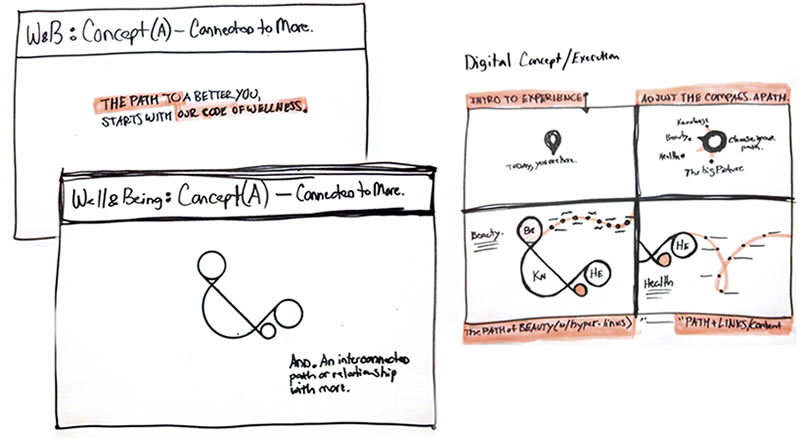 W&B: Concept(A) – Connected to More.
THE PATH TO A BETTER YOU,
STARTS WITH OUR CODE OF WELLNESS.
Well&Being: Concept(A) – Connected to More.
And. An interconnected
path or relationship
with more.
Digital Concept/Execution
INTRO TO EXPERIENCE
ADJUST THE COMPASS. A PATH.
TODAY, you are here.
Knowledge
Beauty
Choose your
path.
Health
The big Picture
Beauty.
Be
KN
HE
HE
Health
The PATH of BEAUTY (w/hyper-links)
"PATH + LINKS/content